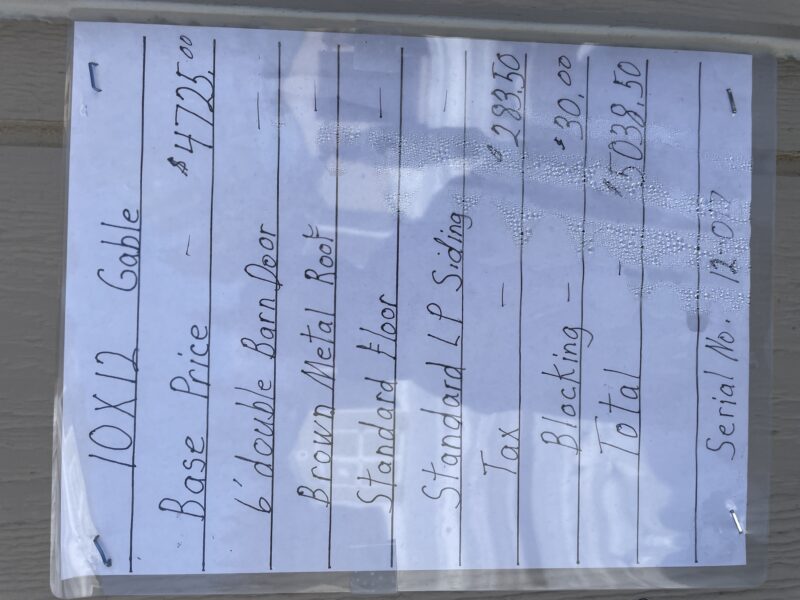 10X12 Gable
Base Price - $4725.00
6' double Barn Door -
Brown Metal Roof -
Standard Floor -
Standard LP Siding -
Tax - $283.50
Blocking - $30.00
Total - $5038.50
Serial No.